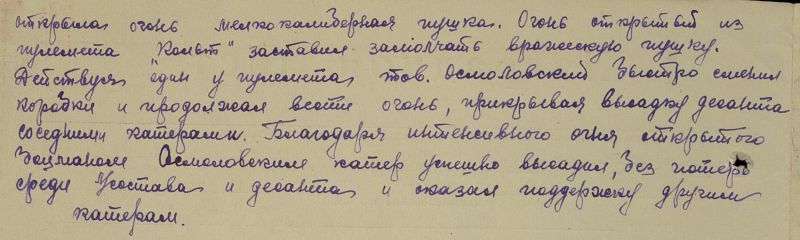 открыла огонь мелкокалиберная пушка. Огонь открытый из
пулемета "Кольт" заставил замолчать вражескую пушку.
Действуя один у пулемета тов. Осмоловский быстро сменил
коробки и продолжал вести огонь, прикрывая высадку десанта
соседними катерами. Благодаря интенсивного огня открытого
Боцманом Осмоловским катер успешно высадил, без потерь
среди л/состава и десанта и оказал поддержку другим
катерам.